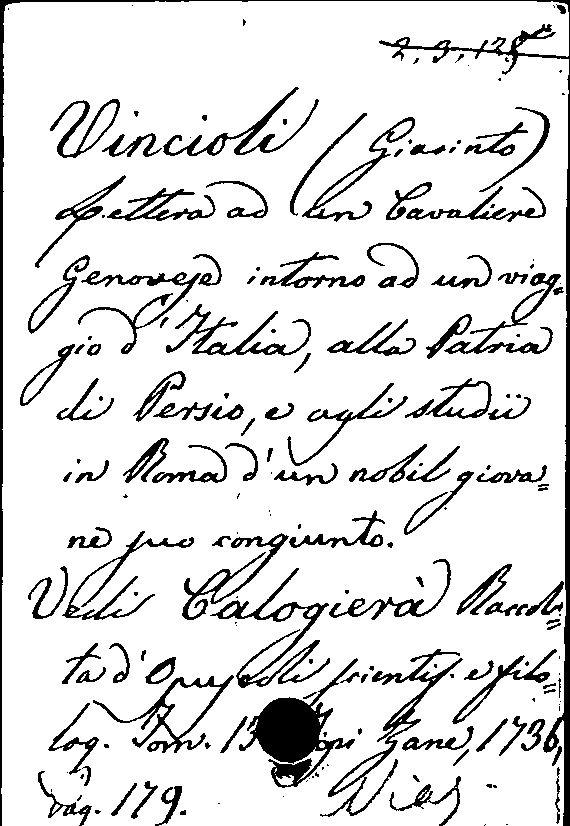 2, 3, 128
Vincioli (Giacinto)
Lettera ad un Cavaliere
Genovese intorno ad un viag=
gio d'Italia, alla Patria
di Persio, e agli studii
in Roma d'un nobil giova=
ne suo congiunto.
Vedi Calogierà Raccol=
ta d'Opuscoli scientif. e filo=
log. Tom. 13 Zane, 1736,
pag. 179.